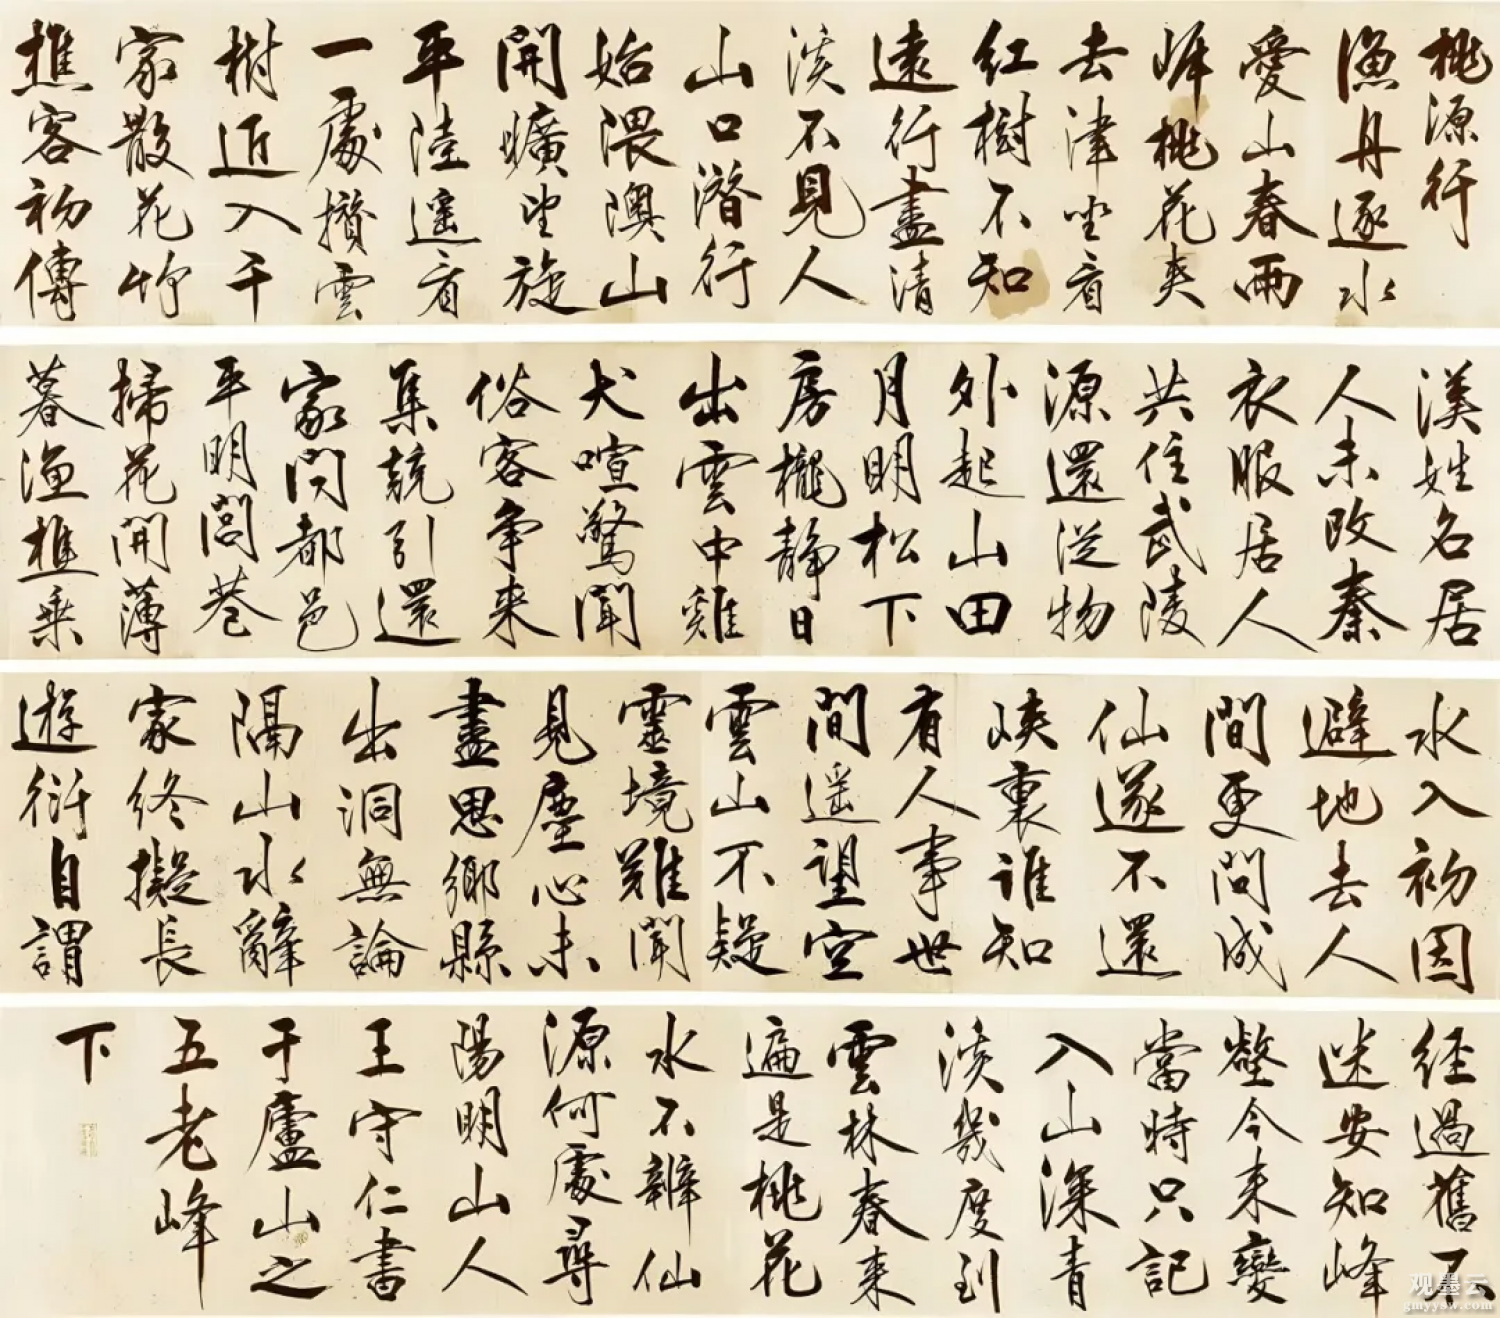 桃源行
漁舟逐水
愛山春兩
岸桃花夾
去津坐看
紅樹不知
遠行盡清
淡不見人
山口潛行
始隈隩山
開曠望旋
平陸遥看
一處攢雲
樹近入千
家散花竹
樵客初傳
漢姓名居
人未改秦
衣服居人
共住武陵
源還從物
外起山田
月明松下
房櫳静日
出雲中雞
犬喧驚聞
俗客爭来
集競引還
家問都邑
平明閭巷
掃花開薄
暮漁樵乘
水入初因
避地去人
間更問成
仙遂不還
峽裏誰知
有人事世
間遥望空
雲山不疑
靈境難聞
見塵心未
盡思鄉縣
出洞無論
隔山水辭
家終擬長
遊衍自謂
經過舊不
迷安知峰
壑今来變
當時只記
入山深青
淡幾度到
雲林春来
遍是桃花
水不辨仙
源何處尋
陽明山人
王守仁書
于廬山之
五老峰
下
观墨云
gmyysw.com